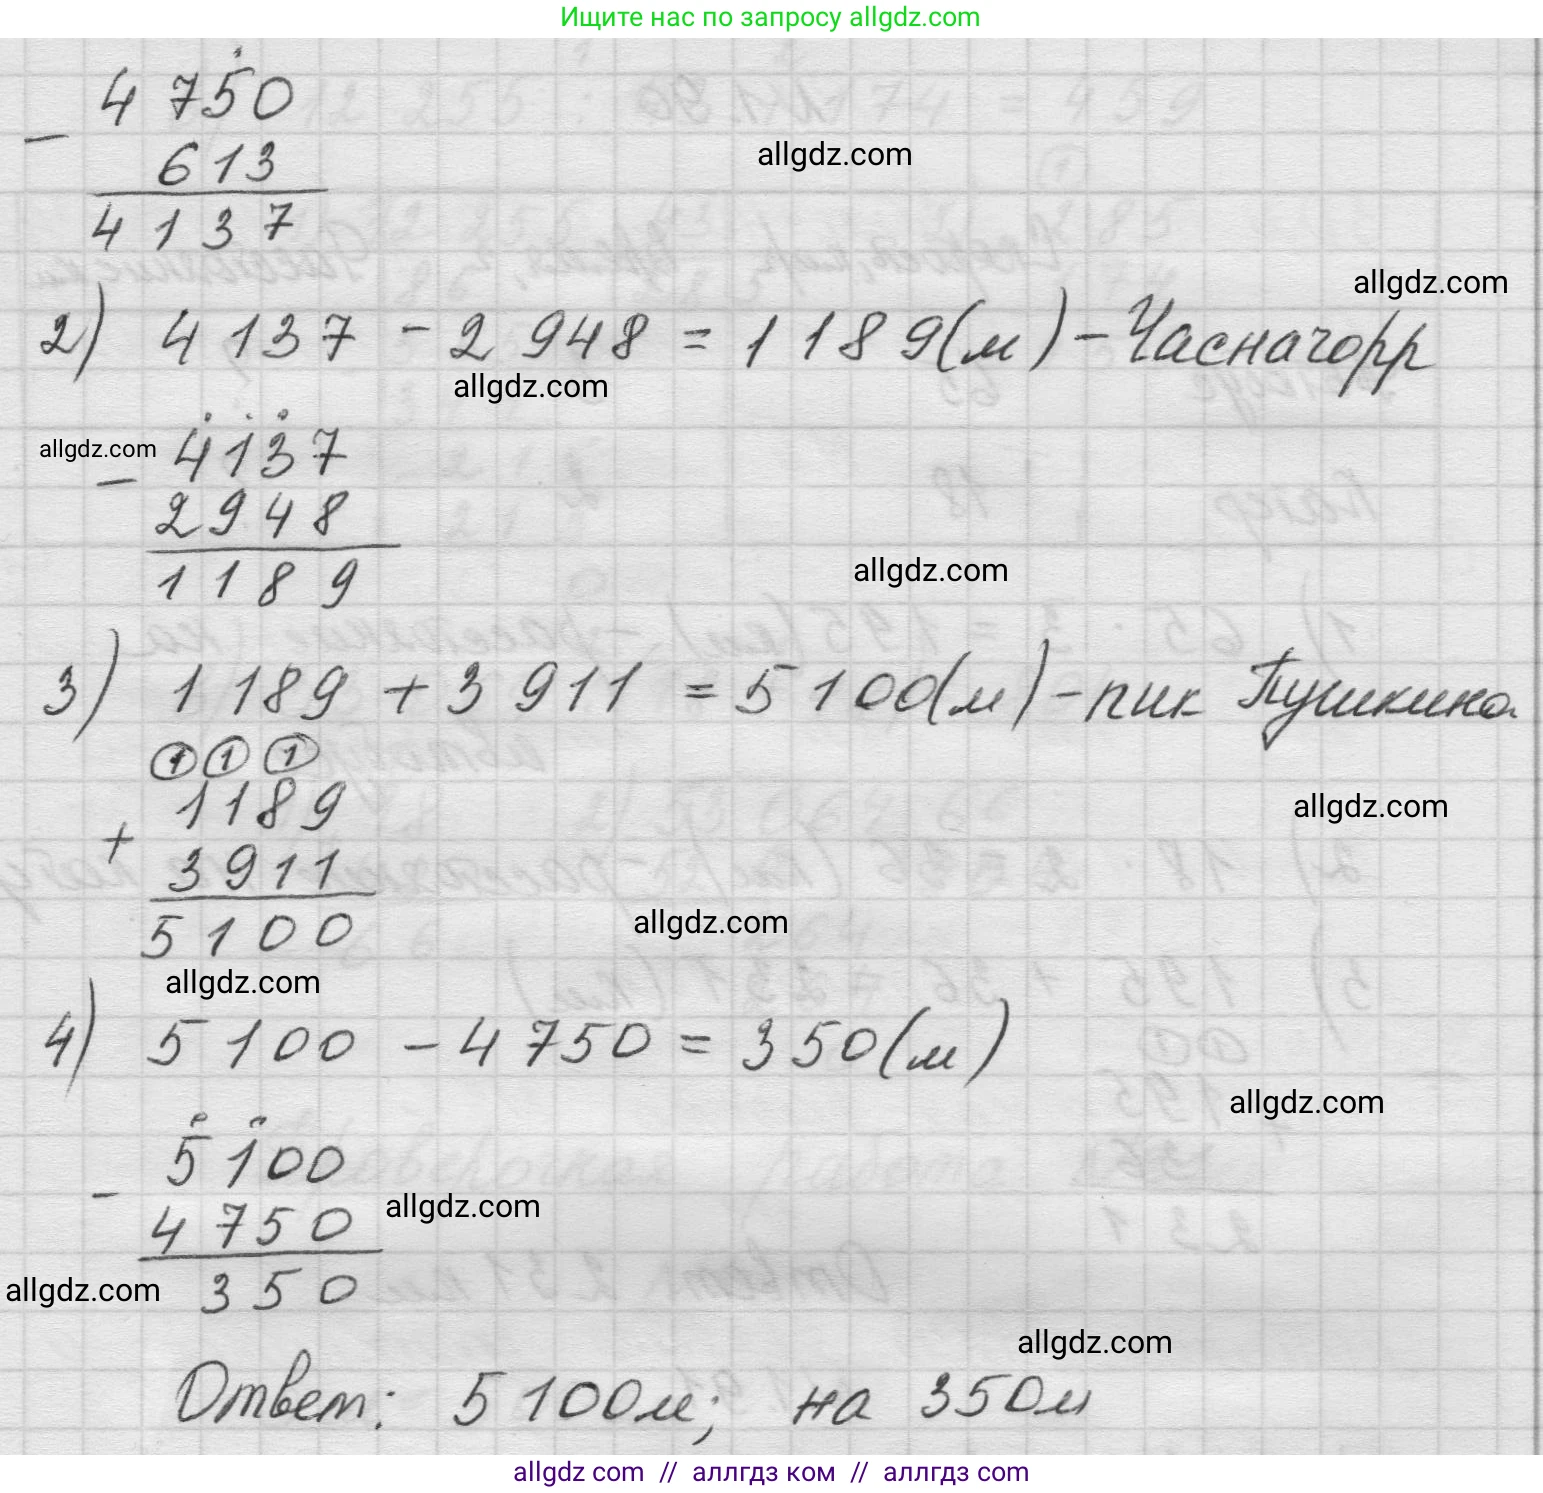 Ищите нас по запросу allgdz.com
4 750
allgdz.com
−
613
4137
allgdz.com
2) 4 137 − 2 948 = 1 189(м) − Часначорр
allgdz.com
allgdz.com
4137
−
2948
1189
allgdz.com
3) 1 189 + 3 911 = 5 100(м) − пик Пушкина
1 1 1
1189
allgdz.com
+
3911
5100
allgdz.com
allgdz.com
4) 5 100 − 4 750 = 350(м)
allgdz.com
5100
−
4750
allgdz.com
350
allgdz.com
allgdz.com
Ответ: 5 100м; на 350м
allgdz com // аллгдз ком // аллгдз com